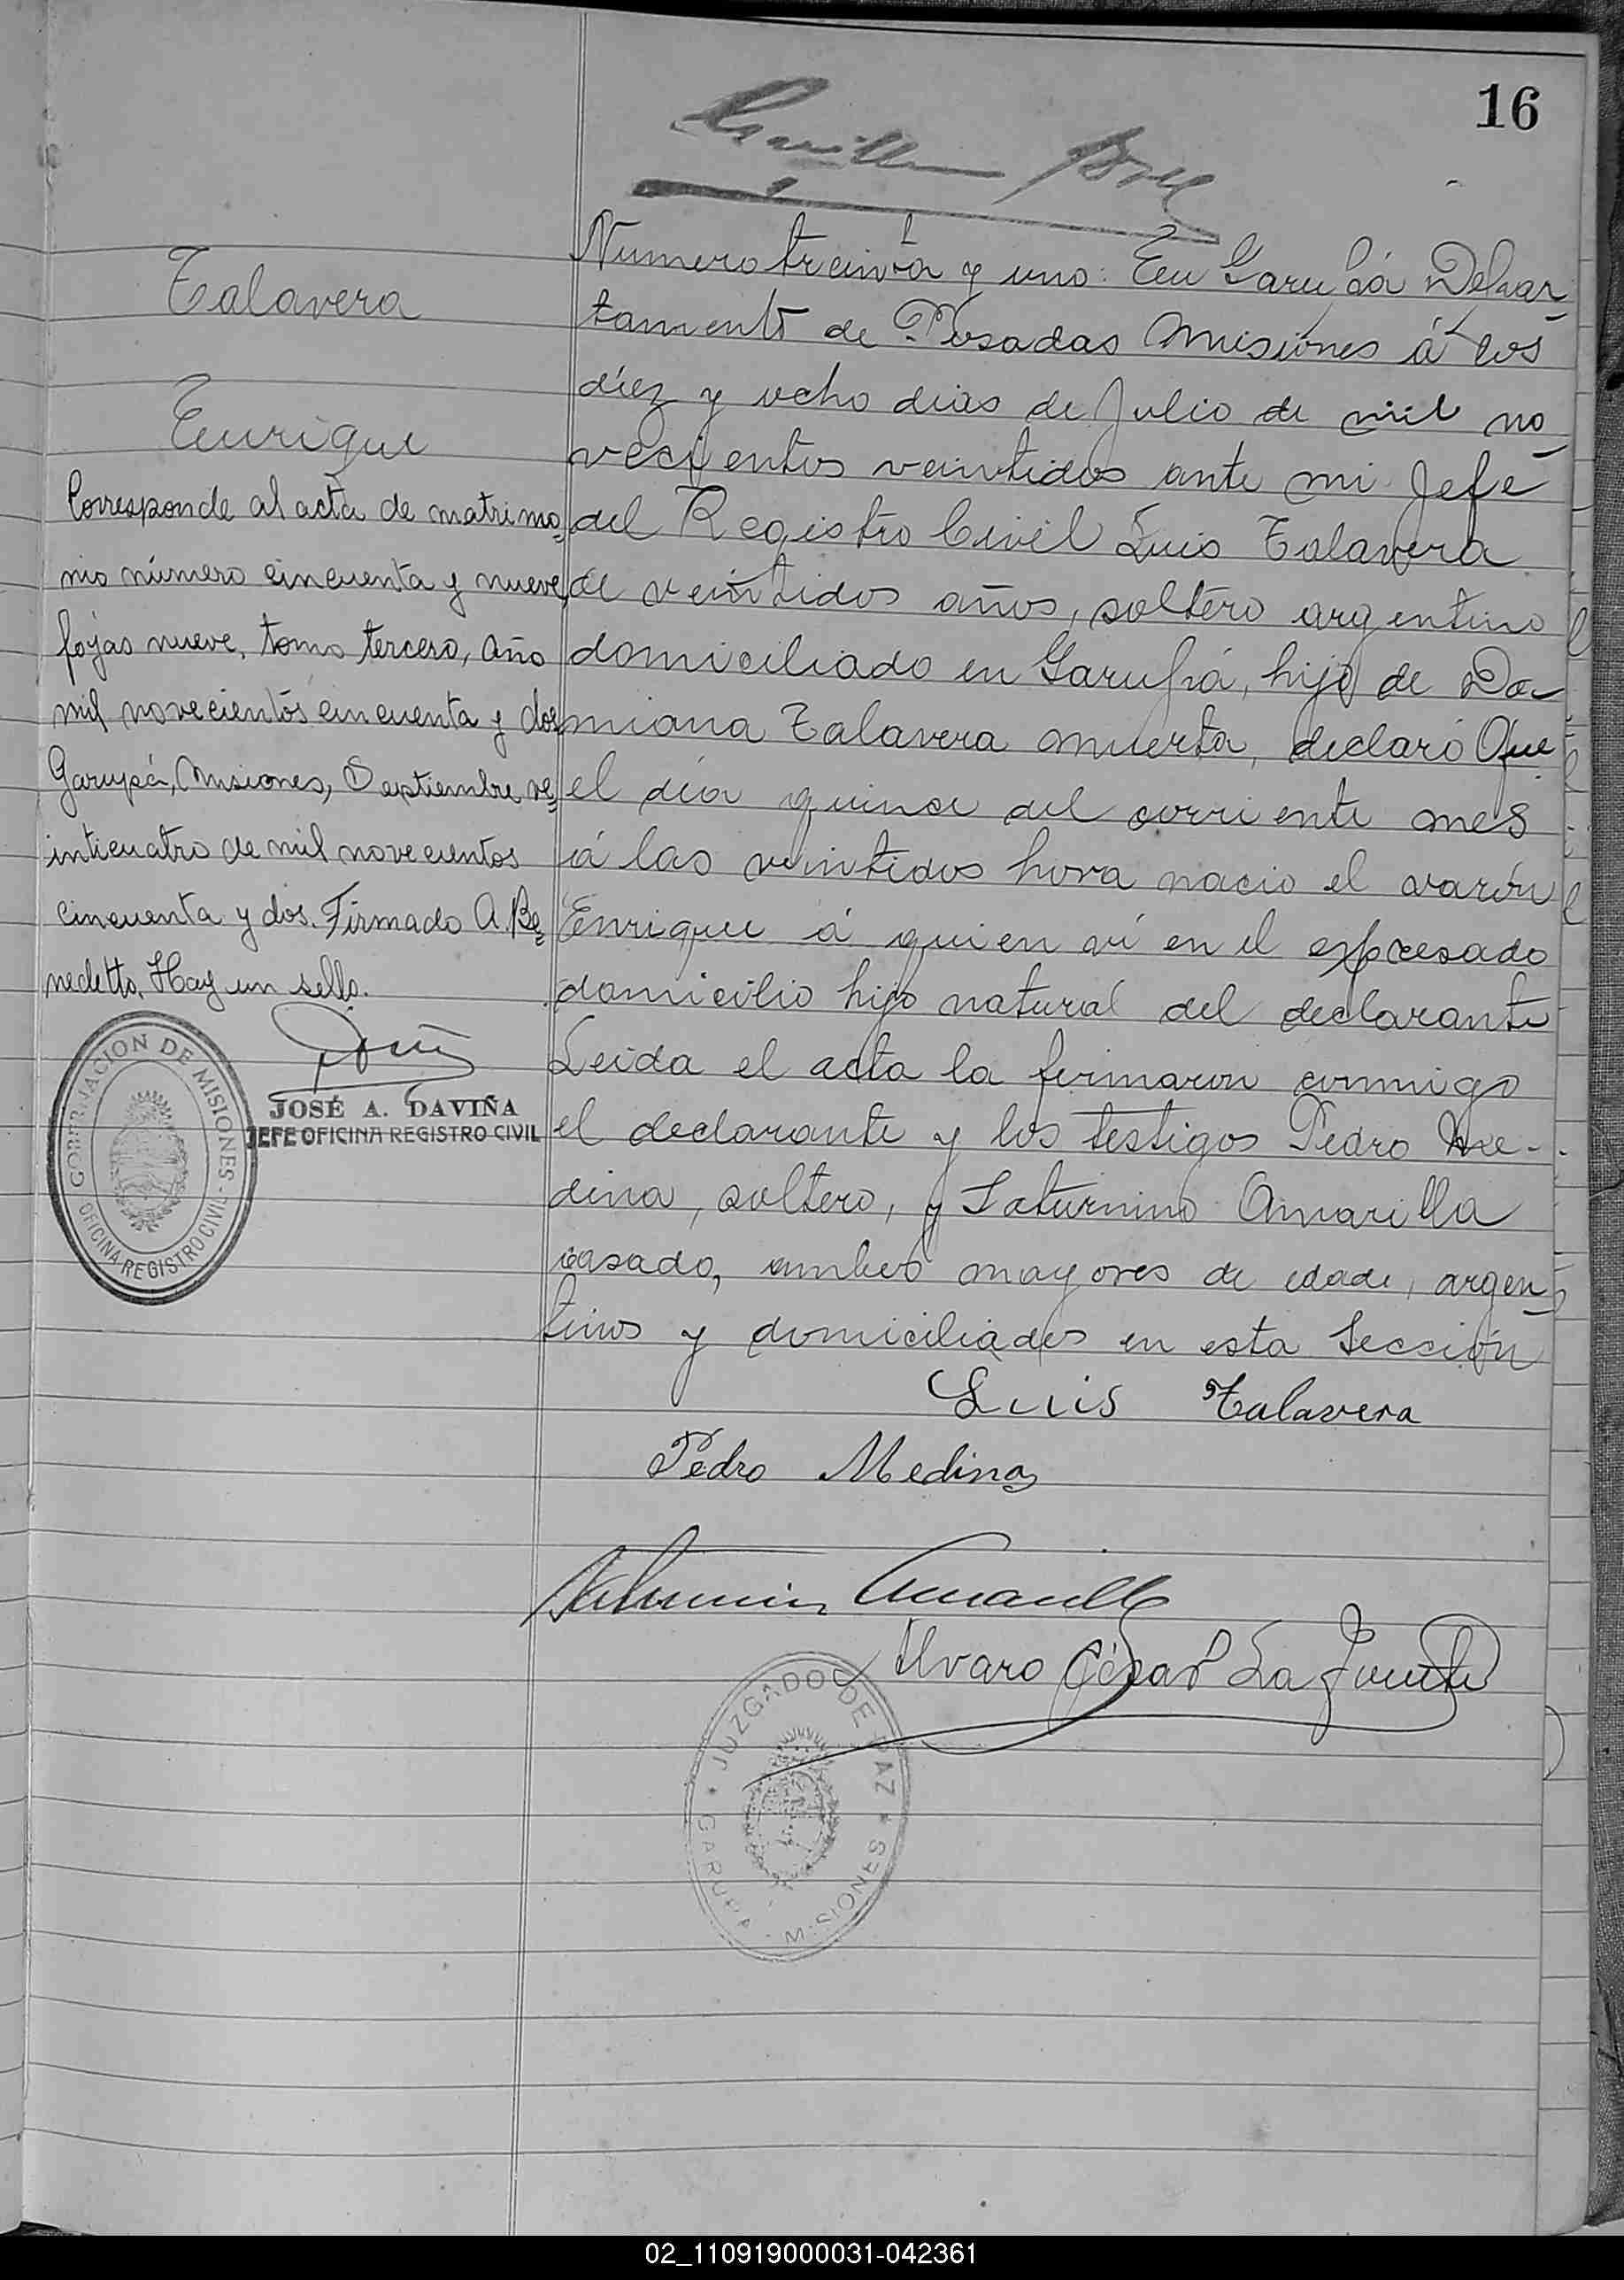 16
Talavera
Enrique
Corresponde al acta de matrimo=
nio número cincuenta y nueve,
fojas nueve, tomo tercero, año
mil novecientos cincuenta y dos
Garupá, Misiones, Septiembre ve=
inticuatro de mil novecientos
cincuenta y dos. Firmado A. Be=
nedetto. Hay un sello.
JOSÉ A. DAVIÑA
JEFE OFICINA REGISTRO CIVIL
GOBERNACION DE MISIONES - OFICINA REGISTRO CIVIL
Numero treinta y uno: En Garupá Depar-
tamento de Posadas Misiones á los
diez y ocho dias de Julio de mil no-
vecientos veintidos ante mi Jefe
del Registro Civil Luis Talavera
de veintidos años, soltero argentino
domiciliado en Garupá, hijo de Da-
miana Talavera muerta, declaró Que
el día quince del corriente mes
á las veintidos hora nacio el varón
Enrique á quien ví en el expresado
domicilio hijo natural del declarante
Leida el acta la firmaron conmigo
el declarante y los testigos Pedro Me-
dina, soltero, y Saturnino Amarilla
casado, ambos mayores de edade, argen-
tinos y domiciliados en esta Sección
Luis Talavera
Pedro Medina
Saturnino Amarilla
Alvaro César La Fuente
JUZGADO DE PAZ GARUPA MISIONES
02_110919000031-042361